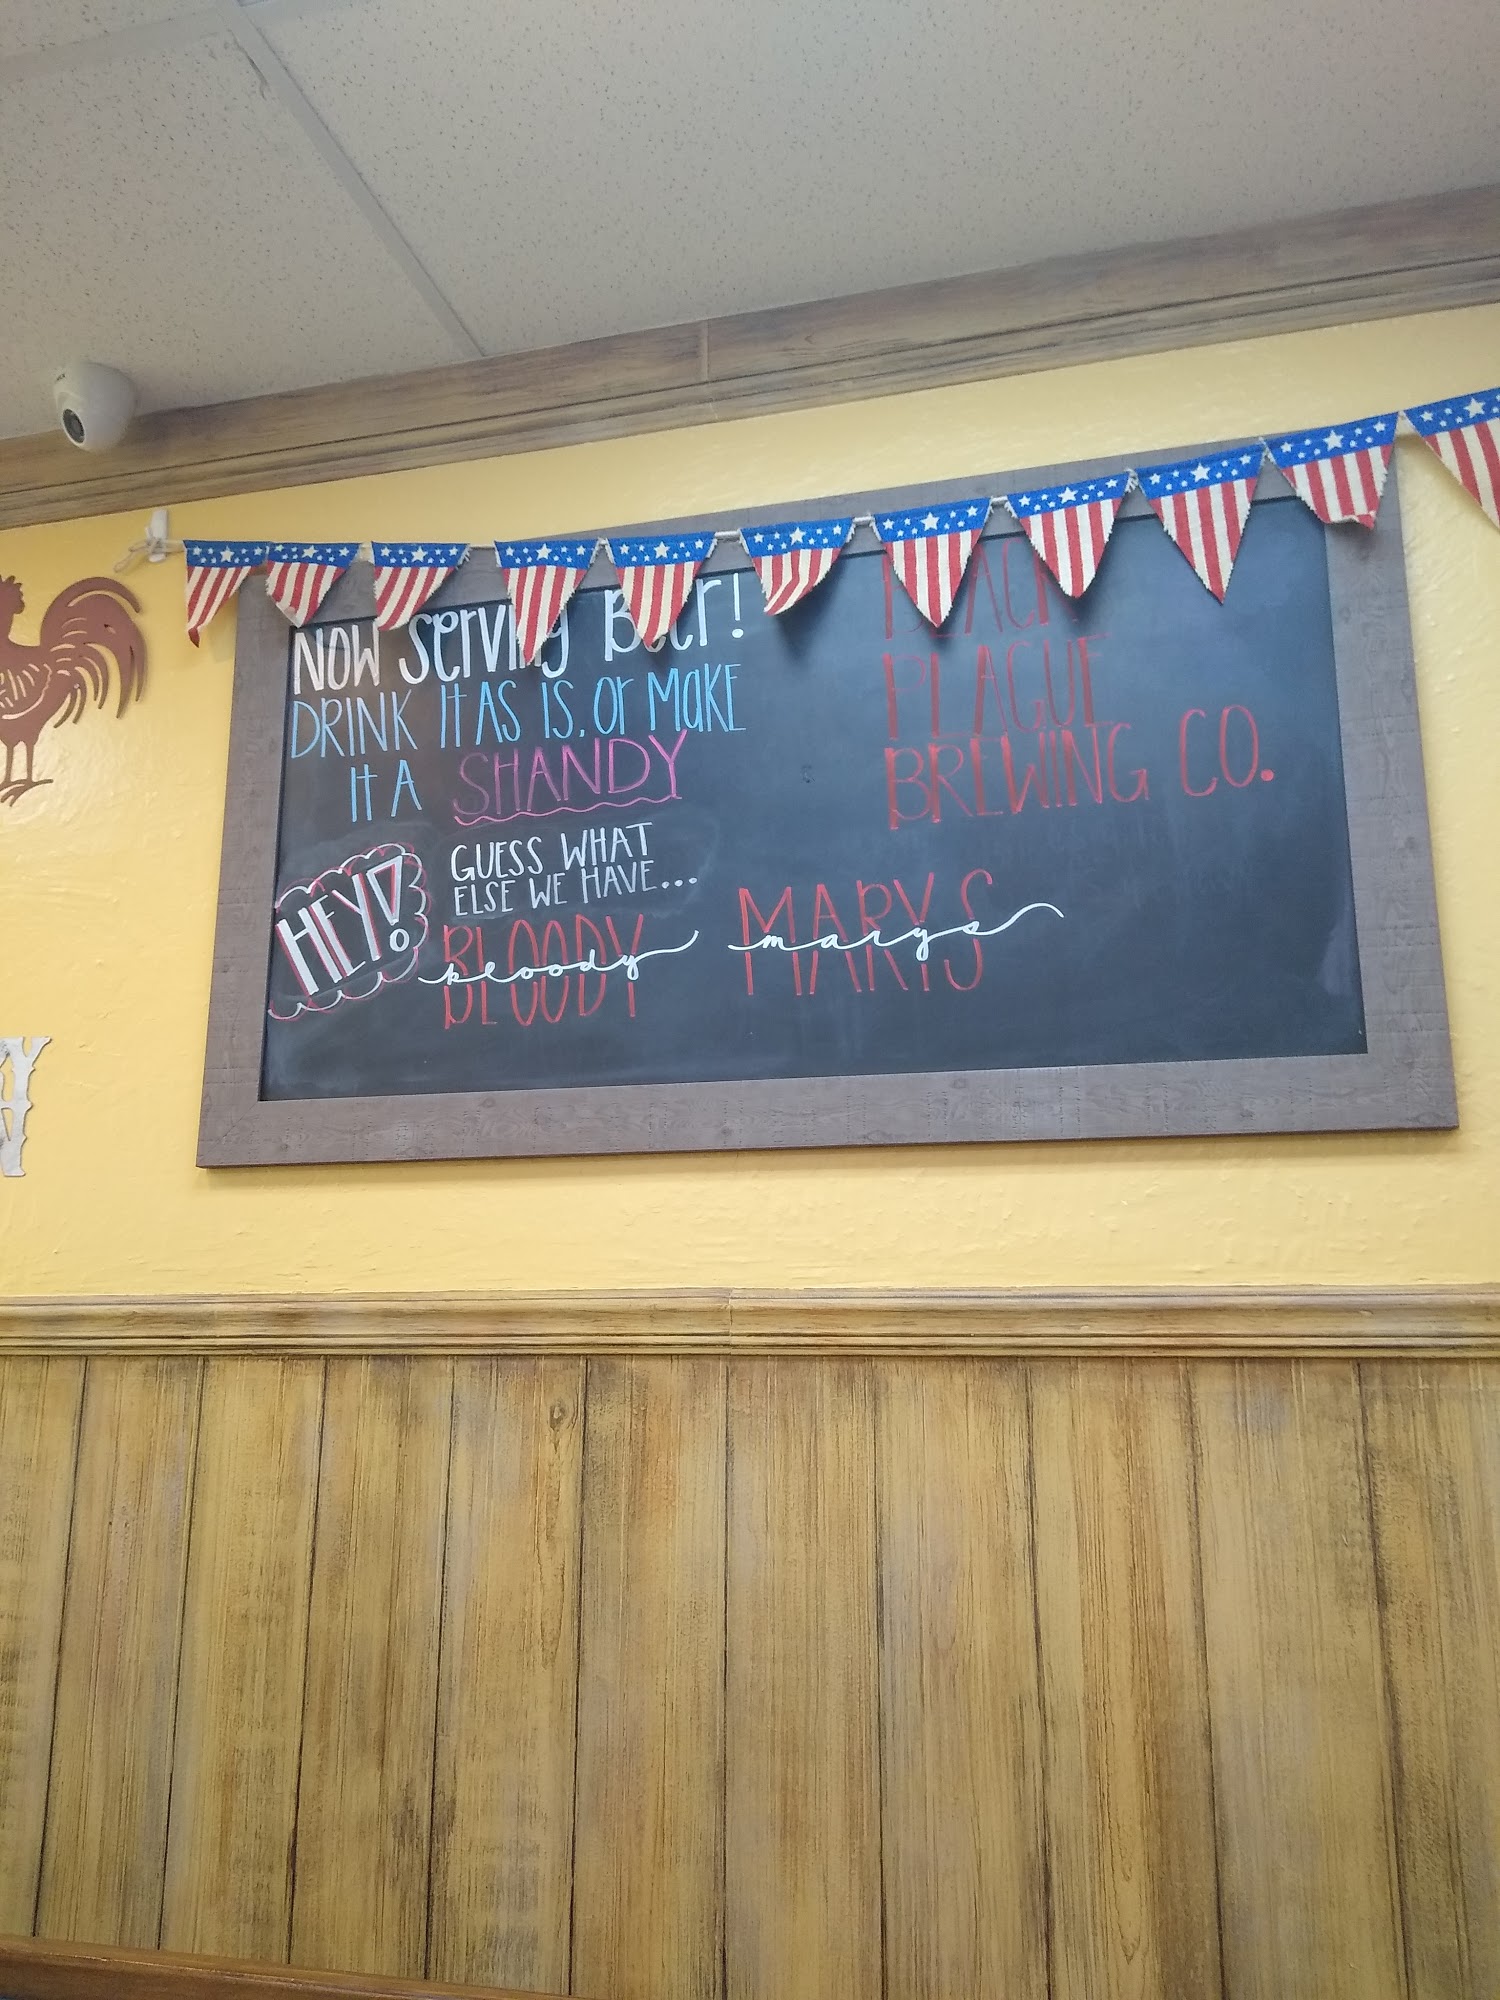 Now Serving Beer!
DRINK It AS IS, Or MAKE
It A SHANDY
HEY!
GUESS WHAT
ELSE WE HAVE...
BLOODY MARYS
bloody marys
BLACK
PLAGUE
BREWING CO.